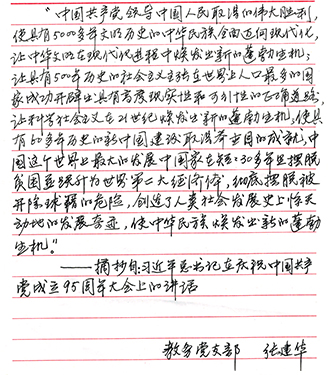 “中国共产党领导中国人民取得的伟大胜利,
使具有5000多年文明历史的中华民族全面迈向现代化,
让中华文明在现代化进程中焕发出新的蓬勃生机;
让具有500年历史的社会主义主张在世界上人口最多的国
家成功开辟出具有高度现实性和可行性的正确道路,
让科学社会主义在21世纪焕发出新的蓬勃生机;使具
有60多年历史的新中国建设取得举世目的成就,中
国这个世界上最大的发展中国家在短短30多年里摆脱
贫困并跃升为世界第二大经济体,彻底摆脱被
开除球籍的危险,创造了人类社会发展史上惊天
动地的发展奇迹,使中华民族焕发出新的蓬勃
生机。”
——摘抄自习近平总书记在庆祝中国共产
党成立95周年大会上的讲话
教务党支部 张建华